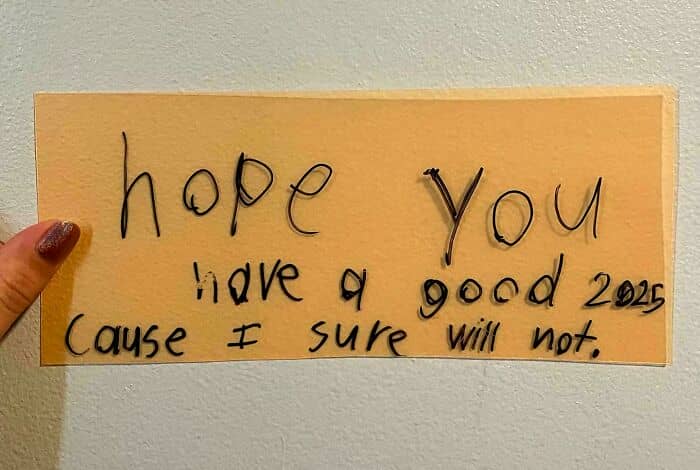 hope you
have a good 2025
Cause I sure will not.